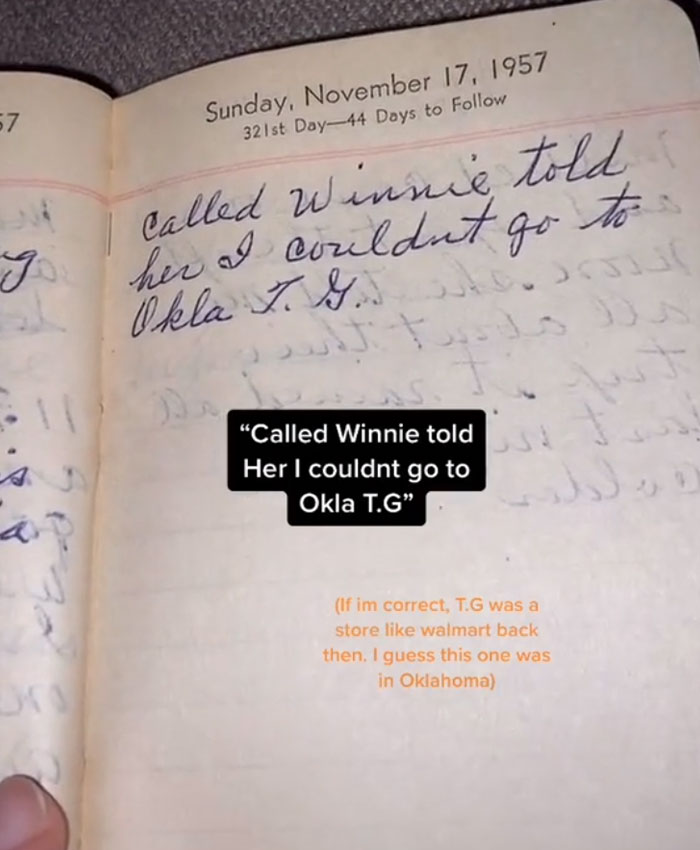 57
Sunday, November 17, 1957
321st Day—44 Days to Follow
Called Winnie told
her I couldnt go to
Okla T. G.
“Called Winnie told
Her I couldnt go to
Okla T.G”
(If im correct, T.G was a
store like walmart back
then. I guess this one was
in Oklahoma)